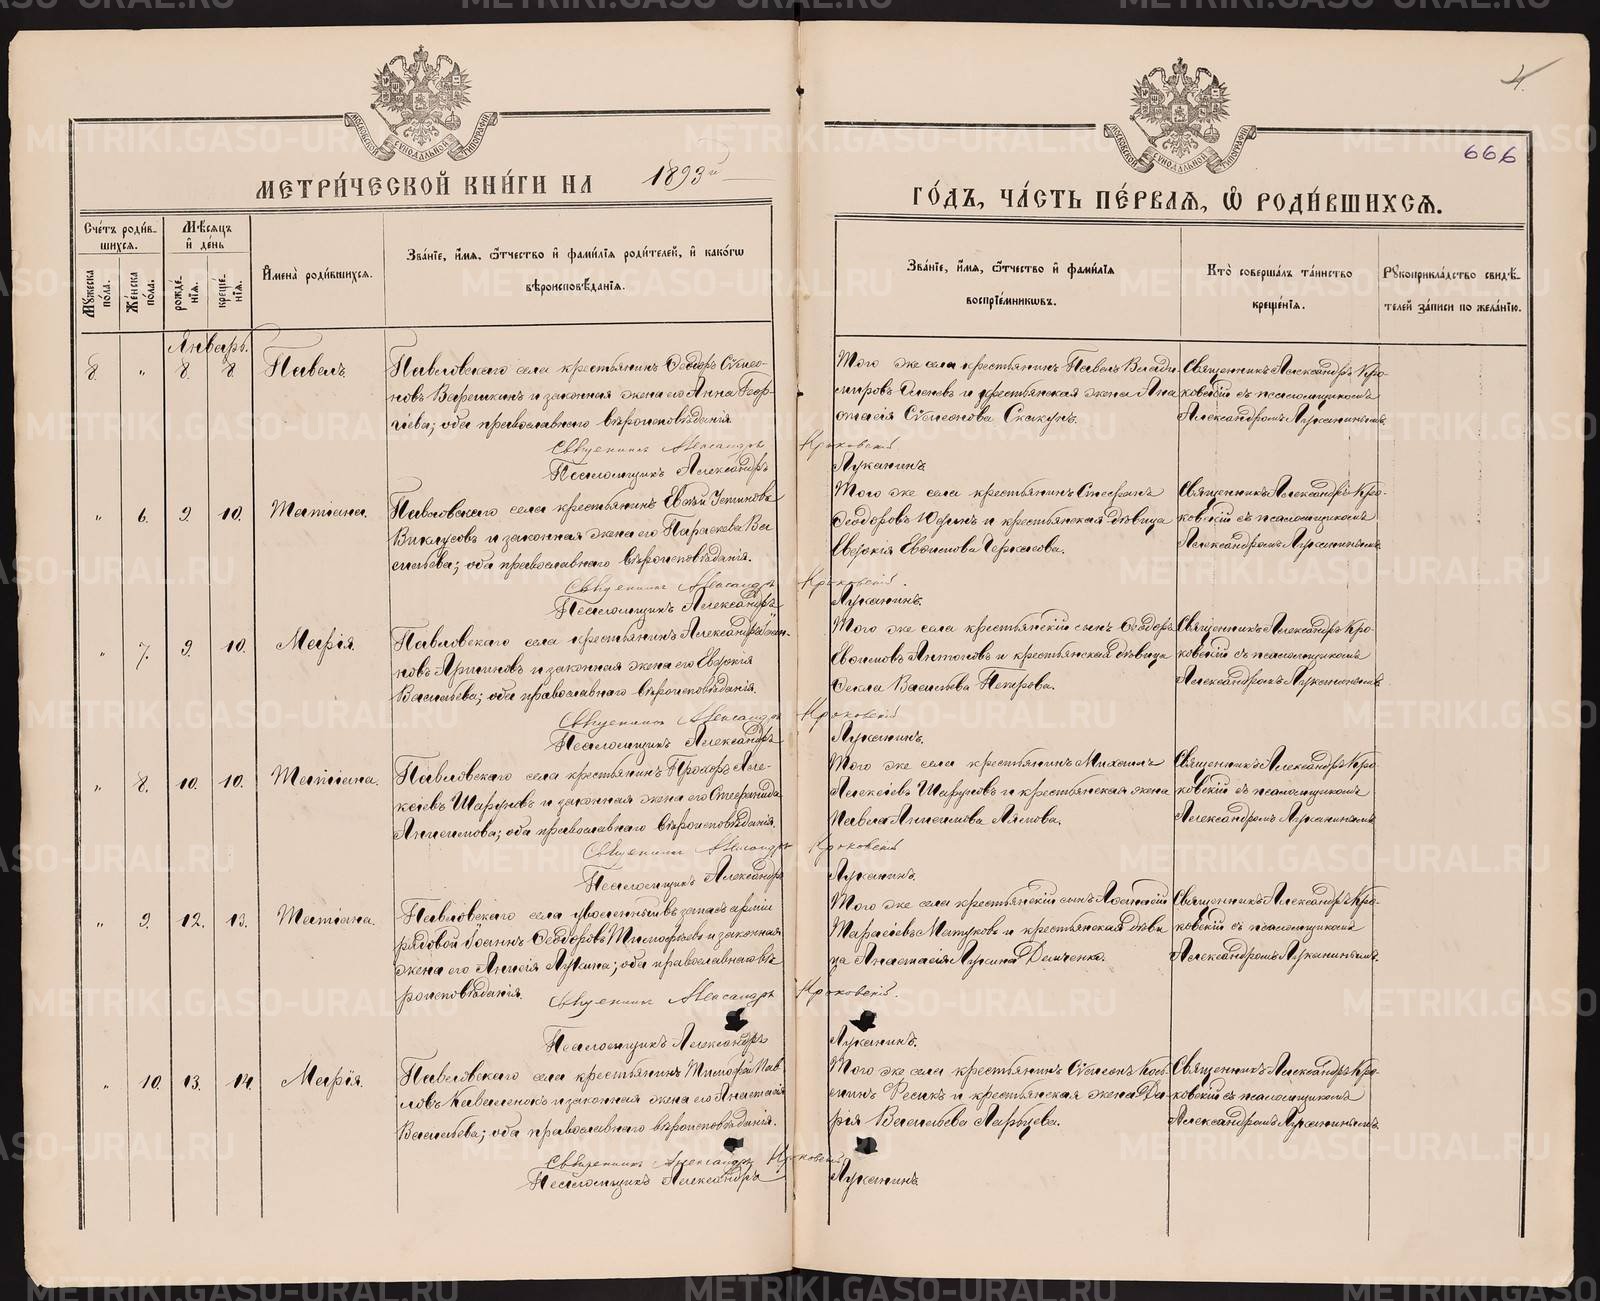 4.
666
МОСКОВСКОЙ СѴНОДАЛЬНОЙ ТИПОГРАФІИ
МОСКОВСКОЙ СѴНОДАЛЬНОЙ ТИПОГРАФІИ
МЕТРИ́ЧЕСКОЙ КНИ́ГИ НА 1893й
ГО́ДЪ, ЧА́СТЬ ПЕ́РВАЯ, Ѡ҆ РОДИ́ВШИХСЯ.
Сче́тъ роди́вшихся.
Мѣ́сяцъ и҆ де́нь
Му́жеска по́ла.
Же́нска по́ла.
рожде́нїя.
креще́нїя.
И҆мена̀ роди́вшихся.
Зва́нїе, и҆́мя, ѻ҆́тчество и҆ фами́лїя роди́телей, и҆ како́гѡ вѣроисповѣ́данїя.
Зва́нїе, и҆́мя, ѻ҆́тчество и҆ фами́лїя воспрїе́мникѡвъ.
Кто̀ соверша́лъ та́инство креще́нїя.
Рꙋкоприкла́дство свидѣ́телей за́писи по жела́нїю.
Январь.
8. " 8. 8. Павелъ.
Павловскаго села крестьянинъ Ѳеодоръ Сѵмео-
новъ Верешкинъ и законная жена его Анна Геор-
гіева; оба православнаго вѣроисповѣданія.
Священникъ Александръ Кроковскій
Псаломщикъ Александръ Луканинъ.
Того же села крестьянинъ Павелъ Влади-
міровъ и крестьянская жена Ана
стасія Сѵмеонова Скакунъ.
Священникъ Александръ Кро-
ковскій съ псаломщикомъ
Александромъ Луканинымъ.
" 6. 9. 10. Татіана.
Павловскаго села крестьянинъ Устиновъ
и законная жена его Параскева Ва
сильева; оба православнаго вѣроисповѣданія.
Священникъ Александръ Кроковскій.
Псаломщикъ Александръ Луканинъ.
Того же села крестьянинъ Стефанъ
Ѳеодоровъ и крестьянская дѣвица
Евдокія Евфимова
Священникъ Александръ Кро-
ковскій съ псаломщикомъ
Александромъ Луканинымъ.
" 7. 9. 10. Марія.
Павловскаго села крестьянинъ Александръ
и законная жена его Евдокія
Васильева; оба православнаго вѣроисповѣданія.
Священникъ Александръ Кроковскій
Псаломщикъ Александръ Луканинъ.
Того же села крестьянскій сынъ Ѳеодоръ
Евфимовъ Антоновъ и крестьянская дѣвица
Ѳекла Васильева Петрова.
Священникъ Александръ Кро-
ковскій съ псаломщикомъ
Александромъ Луканинымъ.
" 8. 10. 10. Татіана.
Павловскаго села крестьянинъ Прохоръ Але-
ксіевъ Шаруновъ и законная жена его Стефанида
Анисимова; оба православнаго вѣроисповѣданія.
Священникъ Александръ Кроковскій
Псаломщикъ Александръ Луканинъ.
Того же села крестьянинъ Михаилъ
Алексіевъ Шаруновъ и крестьянская жена
Павла Анисимова Лямова.
Священникъ Александръ Кро-
ковскій съ псаломщикомъ
Александромъ Луканинымъ.
" 9. 12. 13. Татіана.
Павловскаго села уволенный въ запасъ арміи
рядовой Іоаннъ Ѳеодоровъ Тимофѣевъ и законная
жена его Анисія Лукина; оба православнаго вѣ-
роисповѣданія.
Священникъ Александръ Кроковскій.
Псаломщикъ Александръ Луканинъ.
Того же села крестьянскій сынъ
Тарасіевъ Матуковъ и крестьянская дѣви
ца Анастасія Лукина Демченко.
Священникъ Александръ Кро-
ковскій съ псаломщикомъ
Александромъ Луканинымъ.
" 10. 13. 14. Марія.
Павловскаго села крестьянинъ Тимофей Пав-
ловъ Коваленокъ и законная жена его Анастасія
Васильева; оба православнаго вѣроисповѣданія.
Священникъ Александръ Кроковскій
Псаломщикъ Александръ Луканинъ.
Того же села крестьянинъ Сѵмеонъ Козь-
минъ и крестьянская жена Да-
рія Васильева
Священникъ Александръ Кро-
ковскій съ псаломщикомъ
Александромъ Луканинымъ.
METRIKI.GASO-URAL.RU